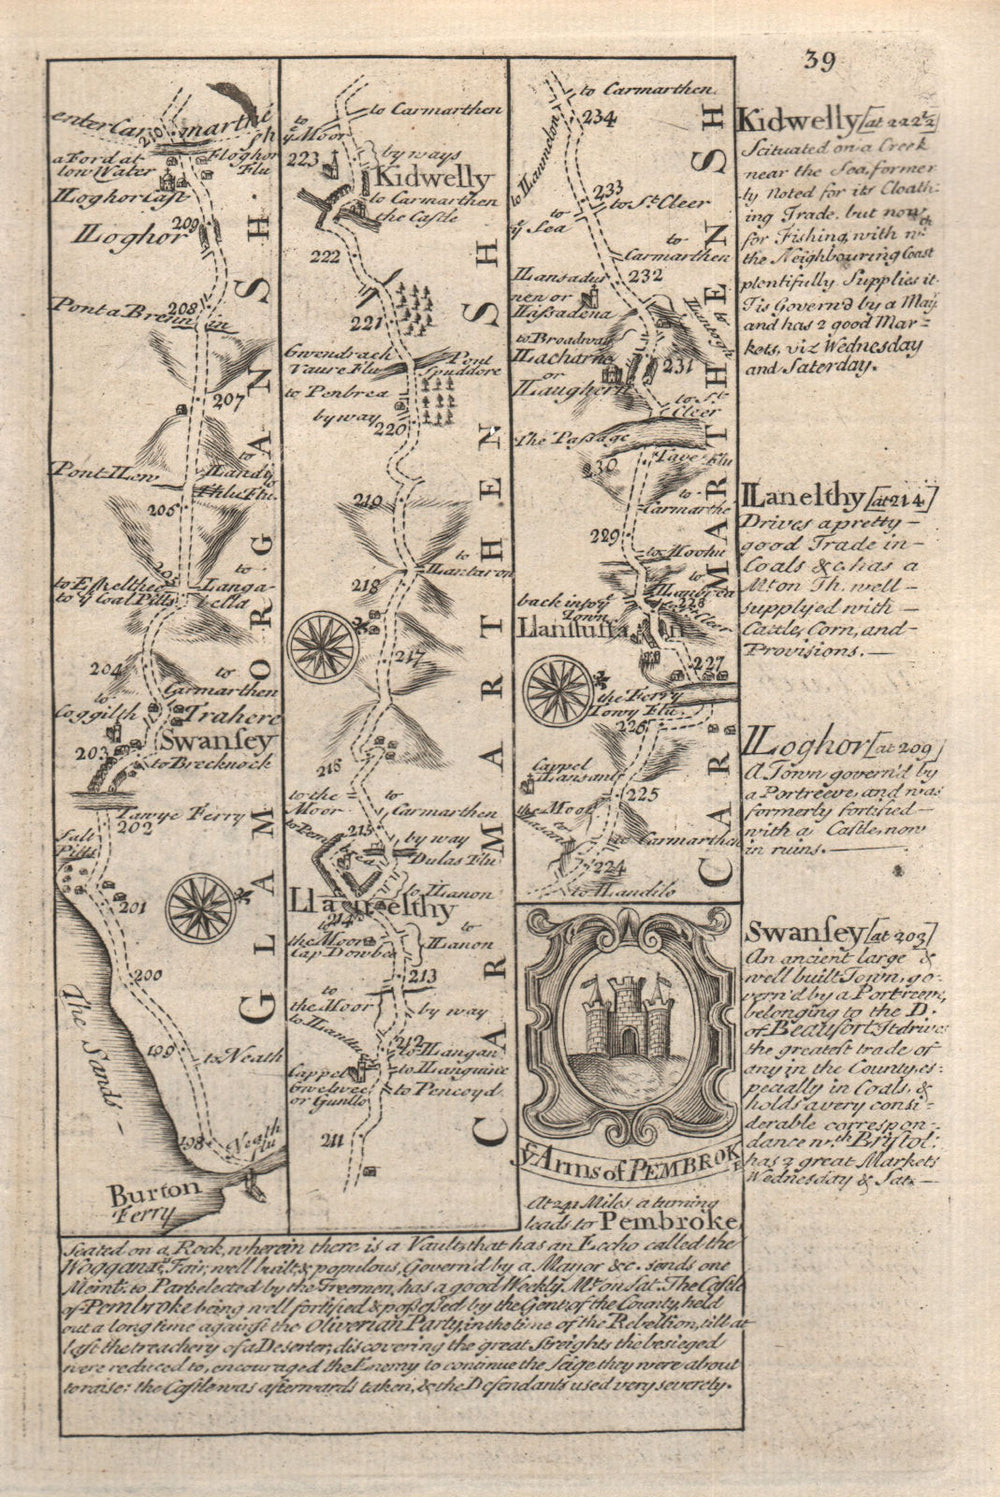 39
enter Car marth
210
sh
a Ford at
low Water
Floghor
Flu
ILoghor Cast
209
ILoghor
208
Pont a Brenin
207
Pont ILew
to
ILandy
Ehlu Flu.
206
205
to Eshelther
to ẏ Coal Pitts
to
Langa-
bella
204
to
Carmarthen
to
Coggilsh
Trahere
203
Swansey
to Brecknock
Tawye Ferry
202
Salt
Pitts
201
200
The Sands
199
to Neath
198
Neath
flu
Burton
Ferry
GLAMORGANSH.
to Carmarthen
to
ẏ Moor
223
by ways
Kidwelly
to Carmarthen
the Castle
222
221
Gwendraeh
Vaure Flu
Pont
Spuddore
to Penbrea
by way
220
219
to
Lantaron
218
217
216
to the
Moor
to
Carmarthen
215
by way
Dulas Flu
to ILanon
Llanelthy
214
to
the Moor
Cap Dowbe
to
ILanon
213
to
the Moor
by way
212
to ILangan
to ILanguine
to Pencoyd
Cappel
Gwelwee
or Gunllo
211
CARMARTHENSH
to Carmarthen
234
to ILanmelon
233
to
ẏ Sea
to St. Cleer
to
Carmarthen
232
ILansadur
nen or
ILissadena
to Broadway
ILacharne
or
ILaughern
231
to St.
Cleer
The Passage
Tave Flu
230
to
Carmarthe
229
back into ẏ
Town
to
228
Llanstufan
227
the Ferry
Towy Flu
226
Cappel
ILansant
225
the Moor
to Carmarthen
224
to ILandilo
CARMARTHENSH
ẏ Arms of PEMBROKE
At 241 Miles a turning
leads to Pembroke
Kidwelly [at 222½]
Scituated on a Creek
near the Sea, former
ly Noted for its Cloath:
ing Trade, but now
for Fishing, with wᶜʰ
the Neighbouring Coast
plentifully Supplies it.
Tis Govern'd by a May.
and has 2 good Mar-
kets, viz Wednesday
and Saterday.
ILanelthy [at 214]
Drives a pretty -
good Trade in -
Coals &c. has a
Mt. on Th. well -
supplyed with -
Cattle, Corn, and -
Provisions. -
ILoghor [at 209]
A Town govern'd by
a Portreeve, and was
formerly fortified -
with a Castle, now
in ruins. -
Swansey [at 203]
An ancient large &
well built Town, go-
vern'd by a Portreeve,
belonging to the D.
of Beaufort. It drives
the greatest trade of
any in the County, es-
pecially in Coals, &
holds a very consi-
derable correspon-
dance wth. Bristol:
has 2 great Markets
Wednesday & Sat. -
Seated on a Rock, wherein there is a Vault that has an Eccho called the
Woggan: 'tis Fair, well built & populous, Govern'd by a Mayor &c. sends one
Memb: to Parl. elected by the Freemen, has a good Weekly Mt. on Sat. The Castle
of Pembroke being well fortified & possessed by the Gent. of the County, held
out a long time against the Oliverian Party, in the time of the Rebellion, till at
last the treachery of a Deserter, discovering the great streights the besieged
were reduced to, encouraged the Enemy to continue the Seige they were about
to raise: the Castle was afterwards taken, & the Defendants used very severely.